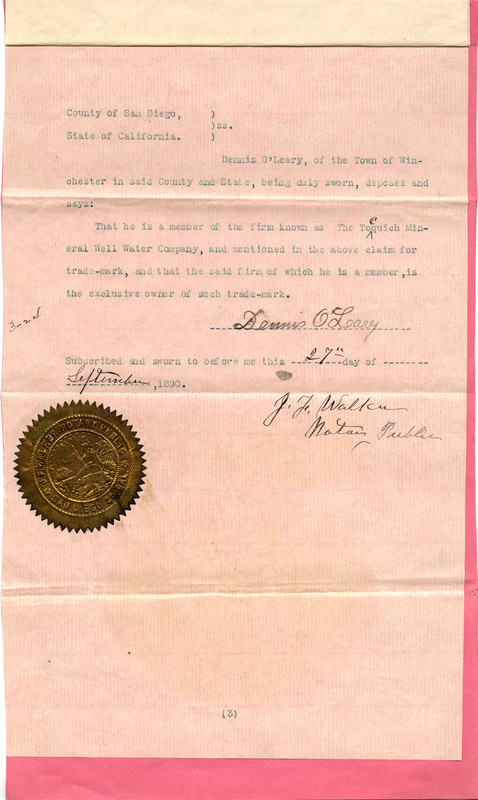 County of San Diego, )
)ss.
State of California. )
Dennis O'Leary, of the Town of Win-
chester in said County and State, being duly sworn, deposes and
says:
That he is a member of the firm known as The Toquich Min-
eral Well Water Company, and mentioned in the above claim for
trade-mark, and that the said firm of which he is a member, is
the exclusive owner of such trade-mark.
Dennis O'Leary
Subscribed and sworn to before me this 27th day of
September, 1890.
J. F. Walker
Notary Public
NOTARY PUBLIC
SAN DIEGO
(3)